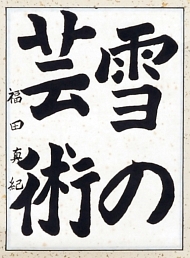 雪の
芸術
福田真紀